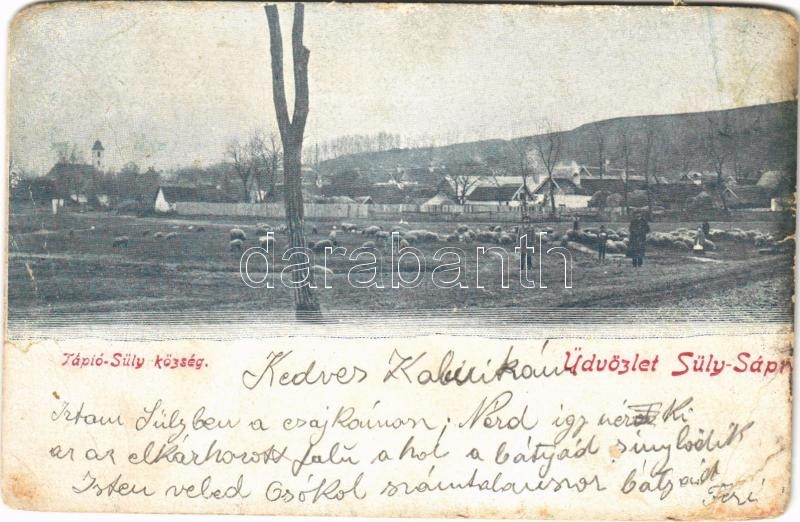 darabanth
Tápió-Süly község.
Üdvözlet Süly-Sápr
Kedves
Itam Sülyben a csajkámon; Nérd igy néz ki
az az elkárhozott falu a hol a bátyád sinylődik
Isten veled Csókol számtalanszor bátyád
Feri